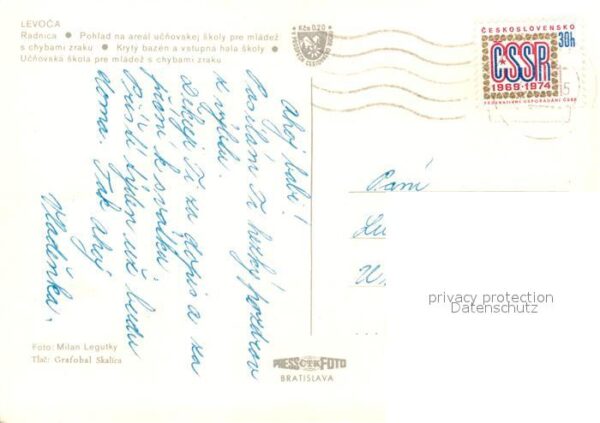 LEVOČA
Radnica ● Pohľad na areál učňovskej školy pre mládež
s chybami zraku ● Krytý bazén a vstupná hala školy ●
Učňovská škola pre mládež s chybami zraku
Kčs 0,20
ČESKOSLOVENSKO
30h
ČSSR
1969-1974
FEDERATÍVNE USPORIADANIE ČSSR
Ahoj babi!
Posílám Ti hezký pozdrav
z výletu.
Děkuji Ti za dopis a za
přání k svátku.
Příští týden už budu
doma. Tak ahoj
Vladěnka.
Paní
privacy protection
Datenschutz
Foto: Milan Legutky
Tlač: Grafobal Skalica
PRESS ČTK FOTO
BRATISLAVA